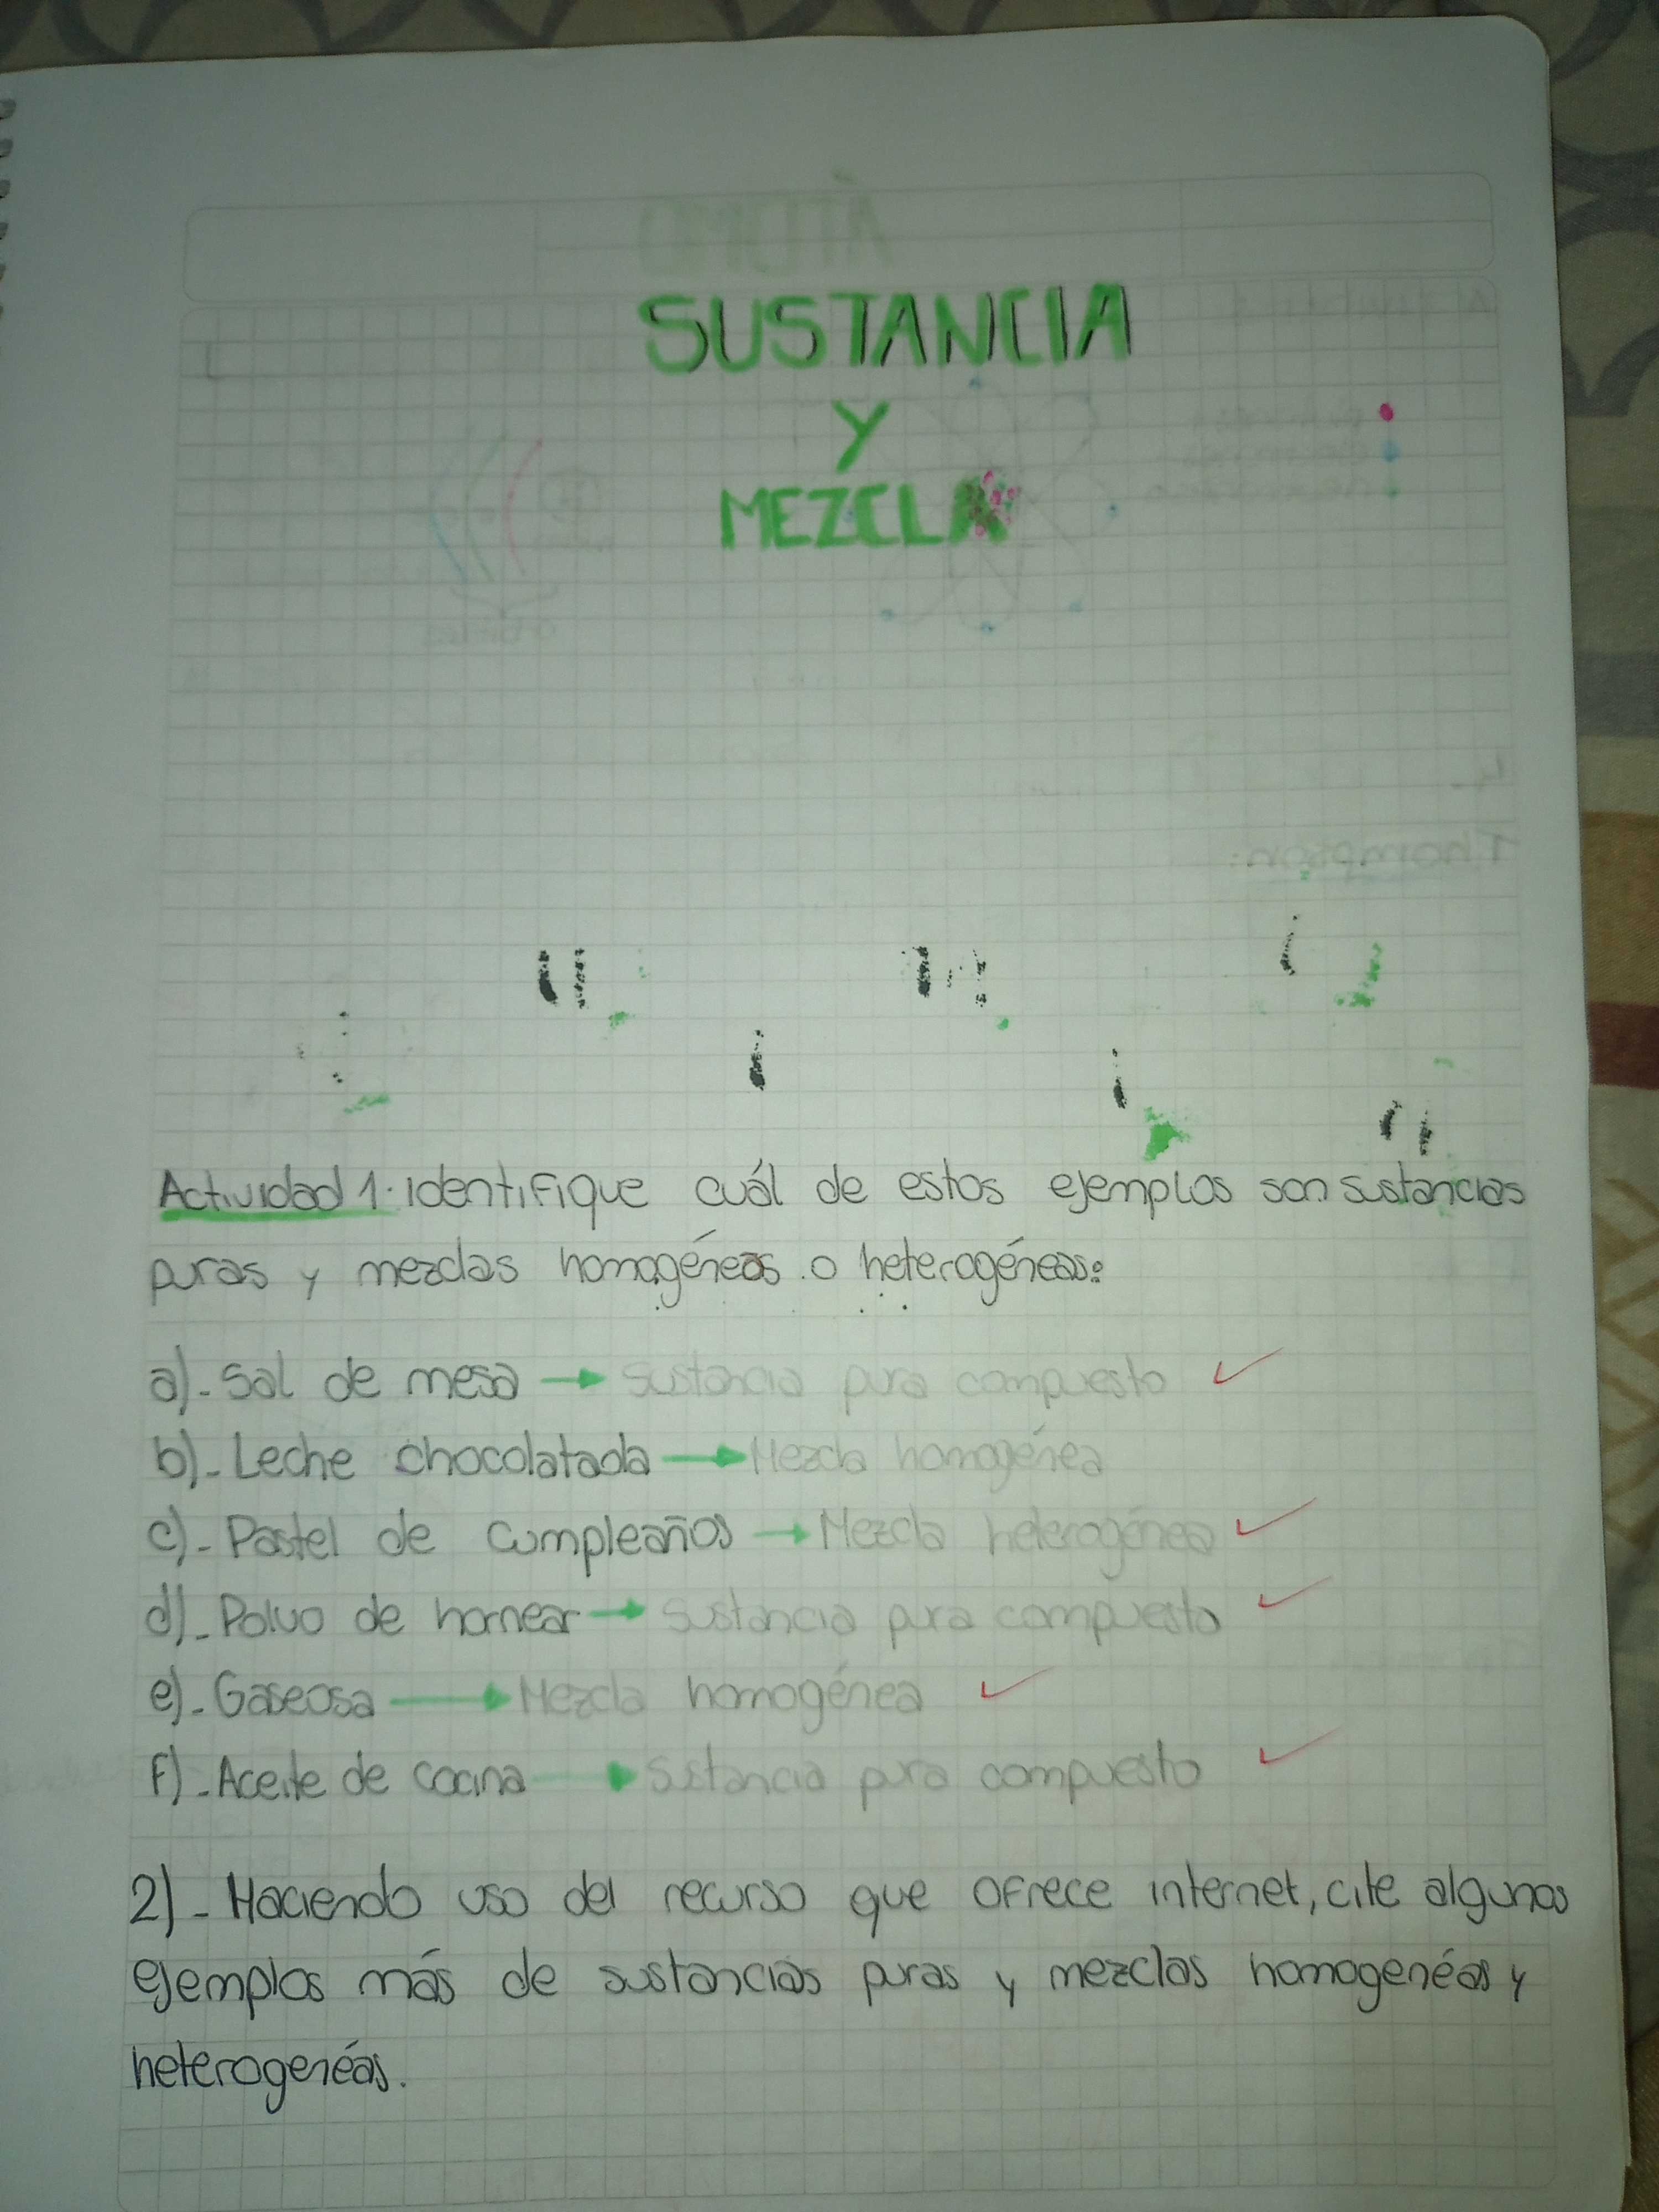 SUSTANCIA
Y
MEZCLA
Actividad 1. identifique cuál de estos ejemplos son sustancias
puras y mezclas homogéneas o heterogéneas:
a)- Sal de mesa → Sustancia pura compuesto ✓
b)- Leche chocolatada → Mezcla homogénea
c)- Pastel de cumpleaños → Mezcla heterogénea ✓
d)- Polvo de hornear → Sustancia pura compuesto ✓
e)- Gaseosa → Mezcla homogénea ✓
f)- Aceite de cocina → Sustancia pura compuesto ✓
2)- Haciendo uso del recurso que ofrece internet, cite algunos
ejemplos más de sustancias puras y mezclas homogenéas y
heterogenéas.